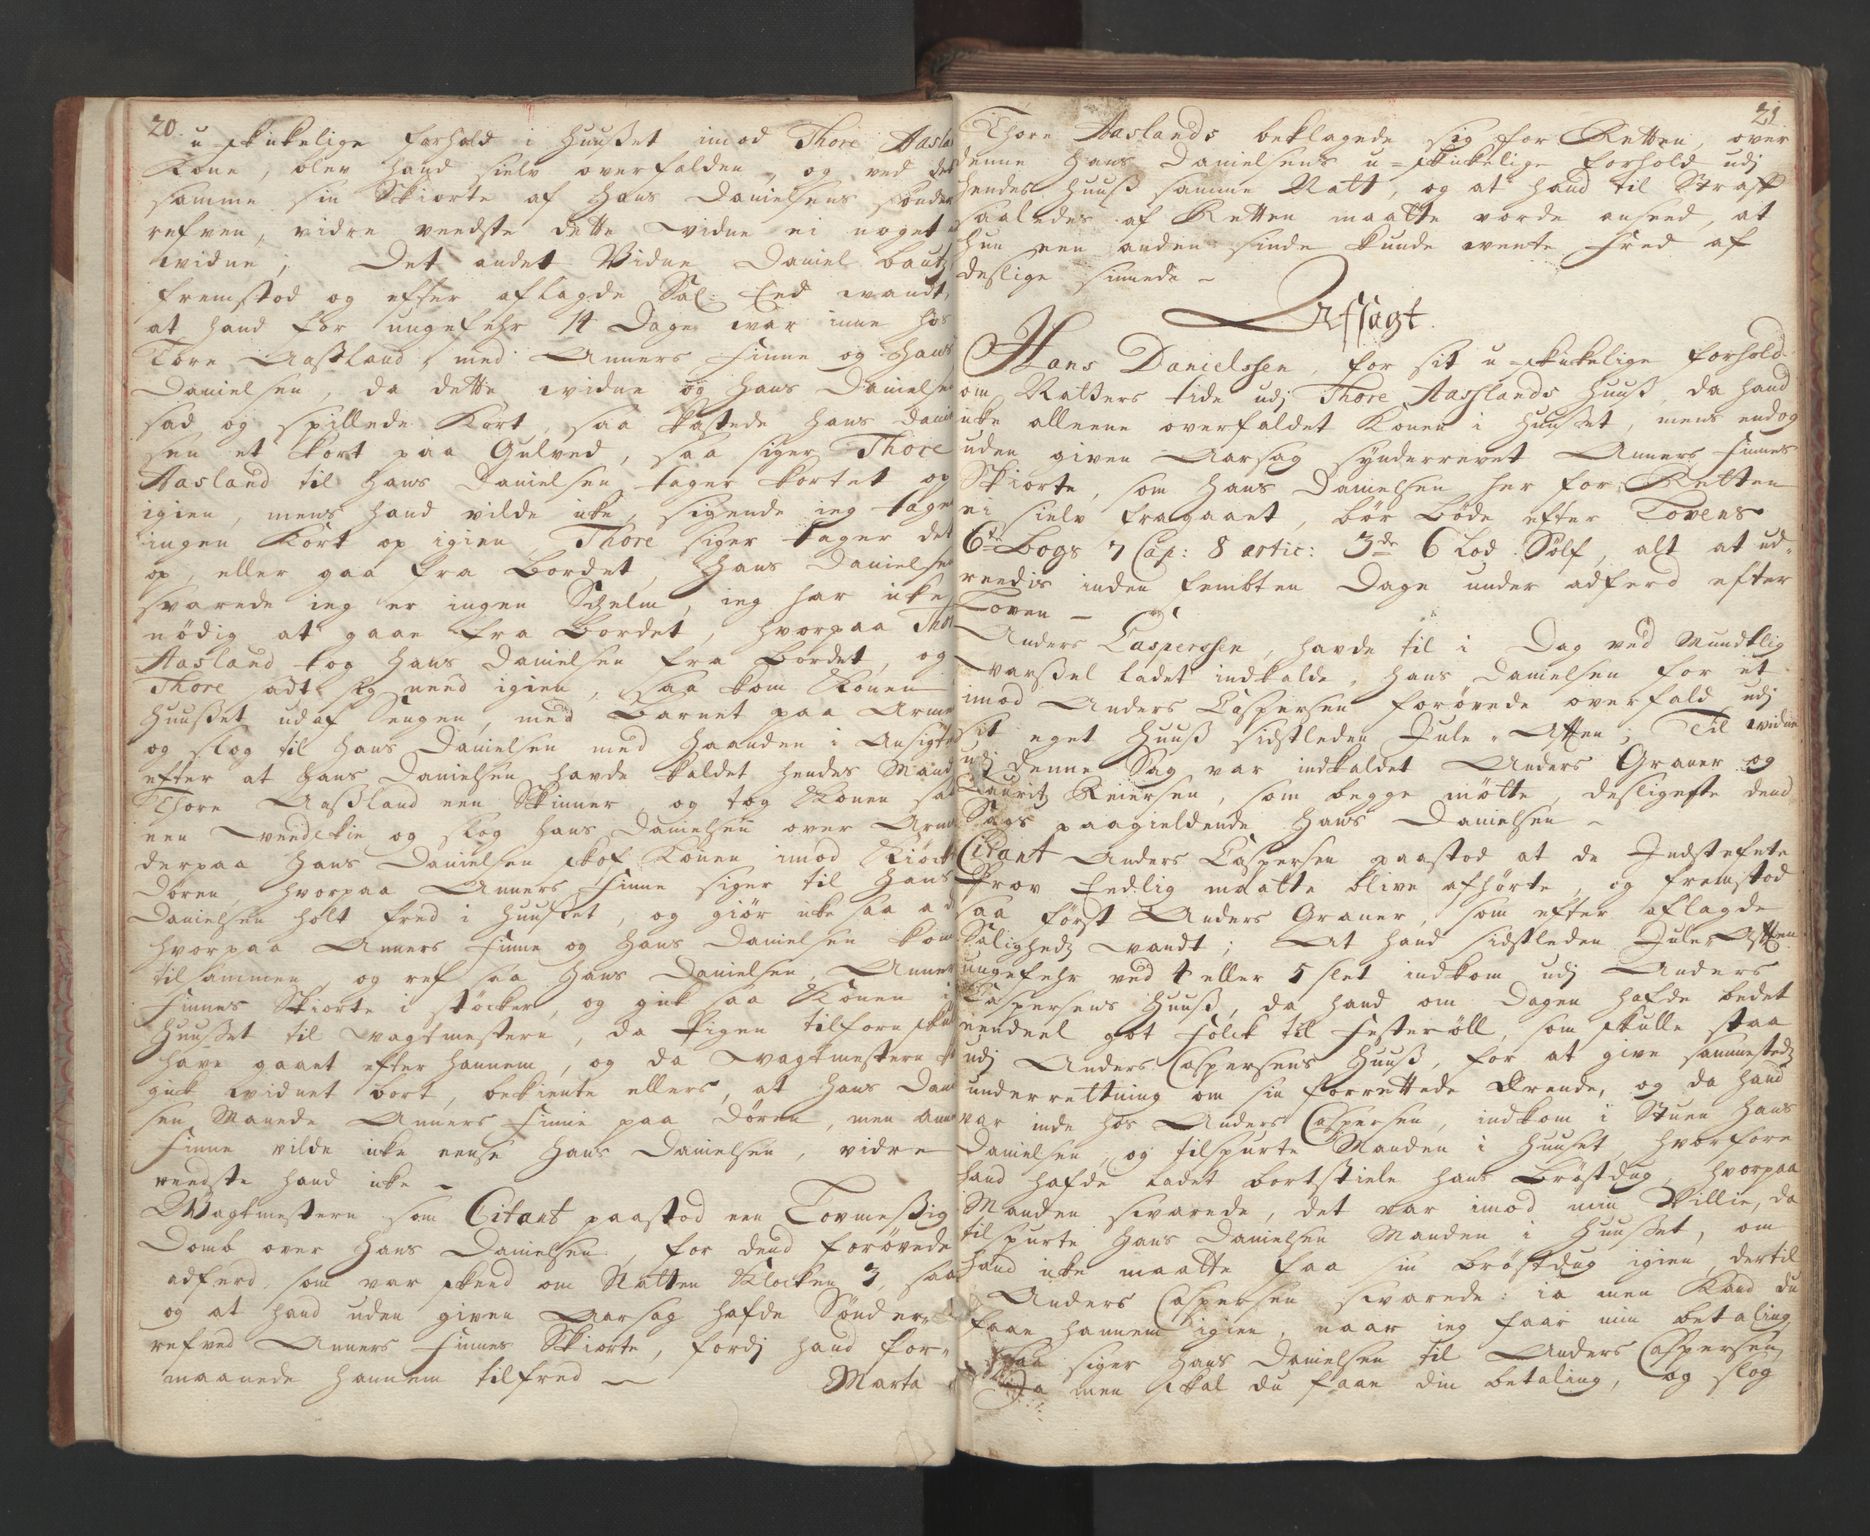 20.
u-skikelige forhold i Huuset imod Thore Aasla
Kone, blev hand sielv overfalden, og ved det
samme sin Skiorte af Hans Danielsens sönder
refven, vidre veedste dette vidne ei noget
vidne; Det andet Vidne Daniel Bautz
fremstod og efter aflagde Sal: Eed vandt,
at hand for ungefehr 14 Dage var inne hos
Tore Aassland, med Anners Finne og Hans
Danielsen, da dette vidne og Hans Daniels
sad og spillede Kort, saa kastede Hans Dani
sen et kort paa Gulved, saa siger Thore
Aasland til Hans Danielsen tager kortet op
igien, mens hand vilde ike, sigende ieg tager
ingen Kort op igien, Thore siger tager det
op, eller gaa fra Bordet, Hans Daniels
svarede ieg er ingen Schelm, ieg har ike
nödig at gaae fra Bordet, hvorpaa Thor
Aasland tog Hans Danielsen fra Bordet, og
Thore sadt sig need igien, saa kom Konen
Huuset udaf Sengen, med Barnet paa Arme
og slog til Hans Danielsen med Haanden i Ansigt
efter at Hans Danielsen havde kaldet hendes Mand
Thore Aassland een Skinner, og tog Konen saa
een Veedskie og slog Hans Danielsen over Arm
derpaa Hans Danielsen skof Konen imod Kiöck
Dören, hvorpaa Anners Finne siger til Hans
Danielsen holt fred i Huuset, og giör ike saa
hvorpaa Anners Finne og Hans Danielsen kom
tilsammen, og ref saa Hans Danielsen, Anner
Finnes Skiorte i stöcker, og gik saa Konen i
Huuset til Vagtmestern, da Pigen tilforn skul
have gaaet efter hannem, og da Vagtmestern
gik vidnet bort, bekiente ellers, at Hans Dani
sen Manede Anners Finne paa Dören, men Anne
Finne vilde ike eense Hans Danielsen, vidre
veedste hand ike ~
Vagtmestern som Citant paastod een Lovmessig
Domb over Hans Danielsen, for dend forövede
adferd, som var skeed om Natten Klocken 3, saa
og at hand uden given Aarsag hafde Sönder-
refved Anners Finnes Skiorte, fordj hand for-
maanede hannem tilfred ~
Marta
21
Thore Aaslands beklagede sig for Retten, over
denne Hans Danielsens u-skikelige forhold udj
hendes Huuss samme Natt, og at hand til Straf
saaledes af Retten maatte vorde anseed, at
hun een anden sinde kunde vente Fred af
deslige simede ~
Afsagt.
Hans Danielssen, for sit u-skikelige forhold
om Natters tide udj Thore Aasslands Huuss, da hand
ike alleene overfaldet Konen i Huuset, mens endog
uden given Aarsag sönderrevet Anners Finnes
Skiorte, som Hans Danielsen her for Retten
ei sielv fragaaet, bör böde efter Lovens
6te Bogs 7 Cap: 8 artic: 3de 6 Lod Sölf, alt at ud-
reedis inden fembten Dage under adferd efter
Loven ~
Anders Casperssen, havde til i Dag ved Mundtlig
Varssel ladet indkalde, Hans Danielsen for et
imod Anders Caspersen forövede overfald udj
sit eget Huuss sidstleden Jule-Aften; Til vidne
udj denne Sag var indkaldet Anders Graner og
Lauritz Reiersen, som begge mötte, desligeste dend
Sags paagieldende Hans Danielsen ~
Citant Anders Caspersen paastod at de Indstefnte
Prov Eedlig maatte blive afhörte, og fremstod
saa först Anders Graner, som efter aflagde
Salighedz vandt; At hand sidstleden Jule-Aften
ungefehr ved 4 eller 5 slet indkom udj Anders
Caspersens Huuss, da hand om Dagen hafde bedet
eendeel got Folck til Festeröll, som skulle staa
udj Anders Caspersens Huuss, for at give sammestedz
underretning om sin forrettede Ærende, og da hand
var inde hos Anders Caspersen, indkom i Stuen Hans
Danielsen, og tilspurte Manden i Huuset, hvorfore
hand hafde ladet bortstiele hans Bröstdug, hvorpaa
Manden svarede, det var imod min Villie, da
tilspurte Hans Danielsen Manden i Huuset, om
hand ike maatte faa sin bröstdug igien, dertil
Anders Caspersen svarede: ia men Kand du
faae hannem igien, naar ieg faar min betaling
saa siger Hans Danielsen til Anders Caspersen
Ja men skal du faae din betaling, og slog